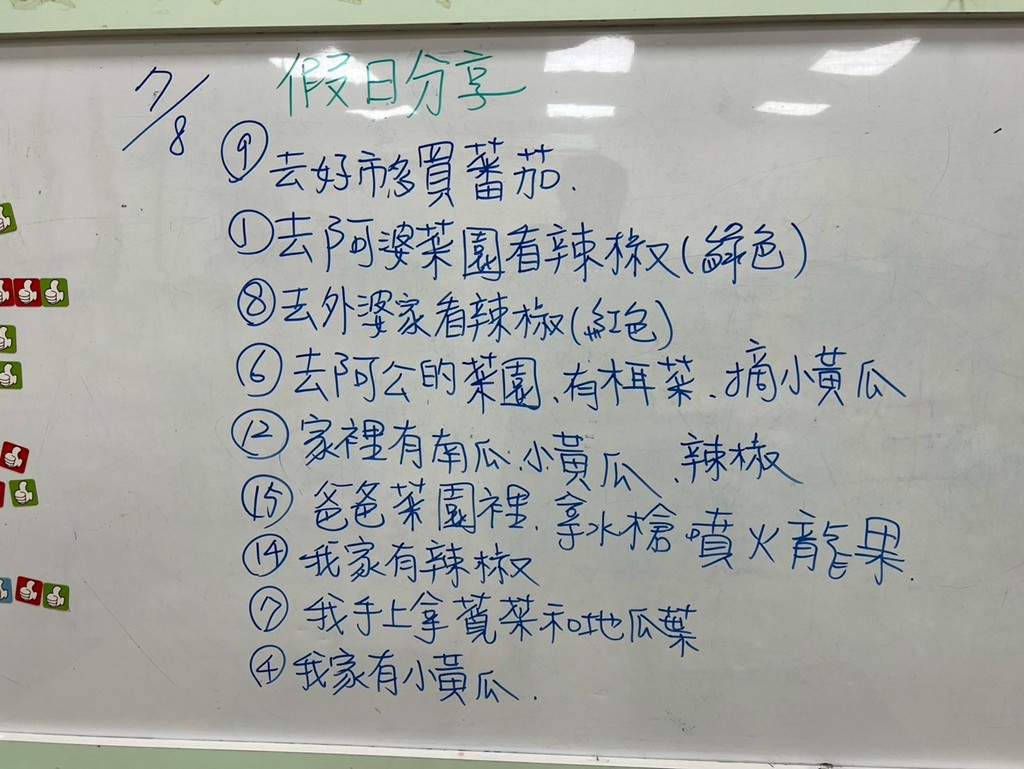 7/8
假日分享
⑨去好市多買蕃茄.
①去阿婆菜園看辣椒(綠色)
⑧去外婆家看辣椒(紅色)
⑥去阿公的菜園、有枏菜、摘小黃瓜
⑫家裡有南瓜、小黃瓜、辣椒
⑮爸爸菜園裡、拿水槍噴火龍果.
⑭我家有辣椒
⑦我手上拿莧菜和地瓜葉
④我家有小黃瓜.